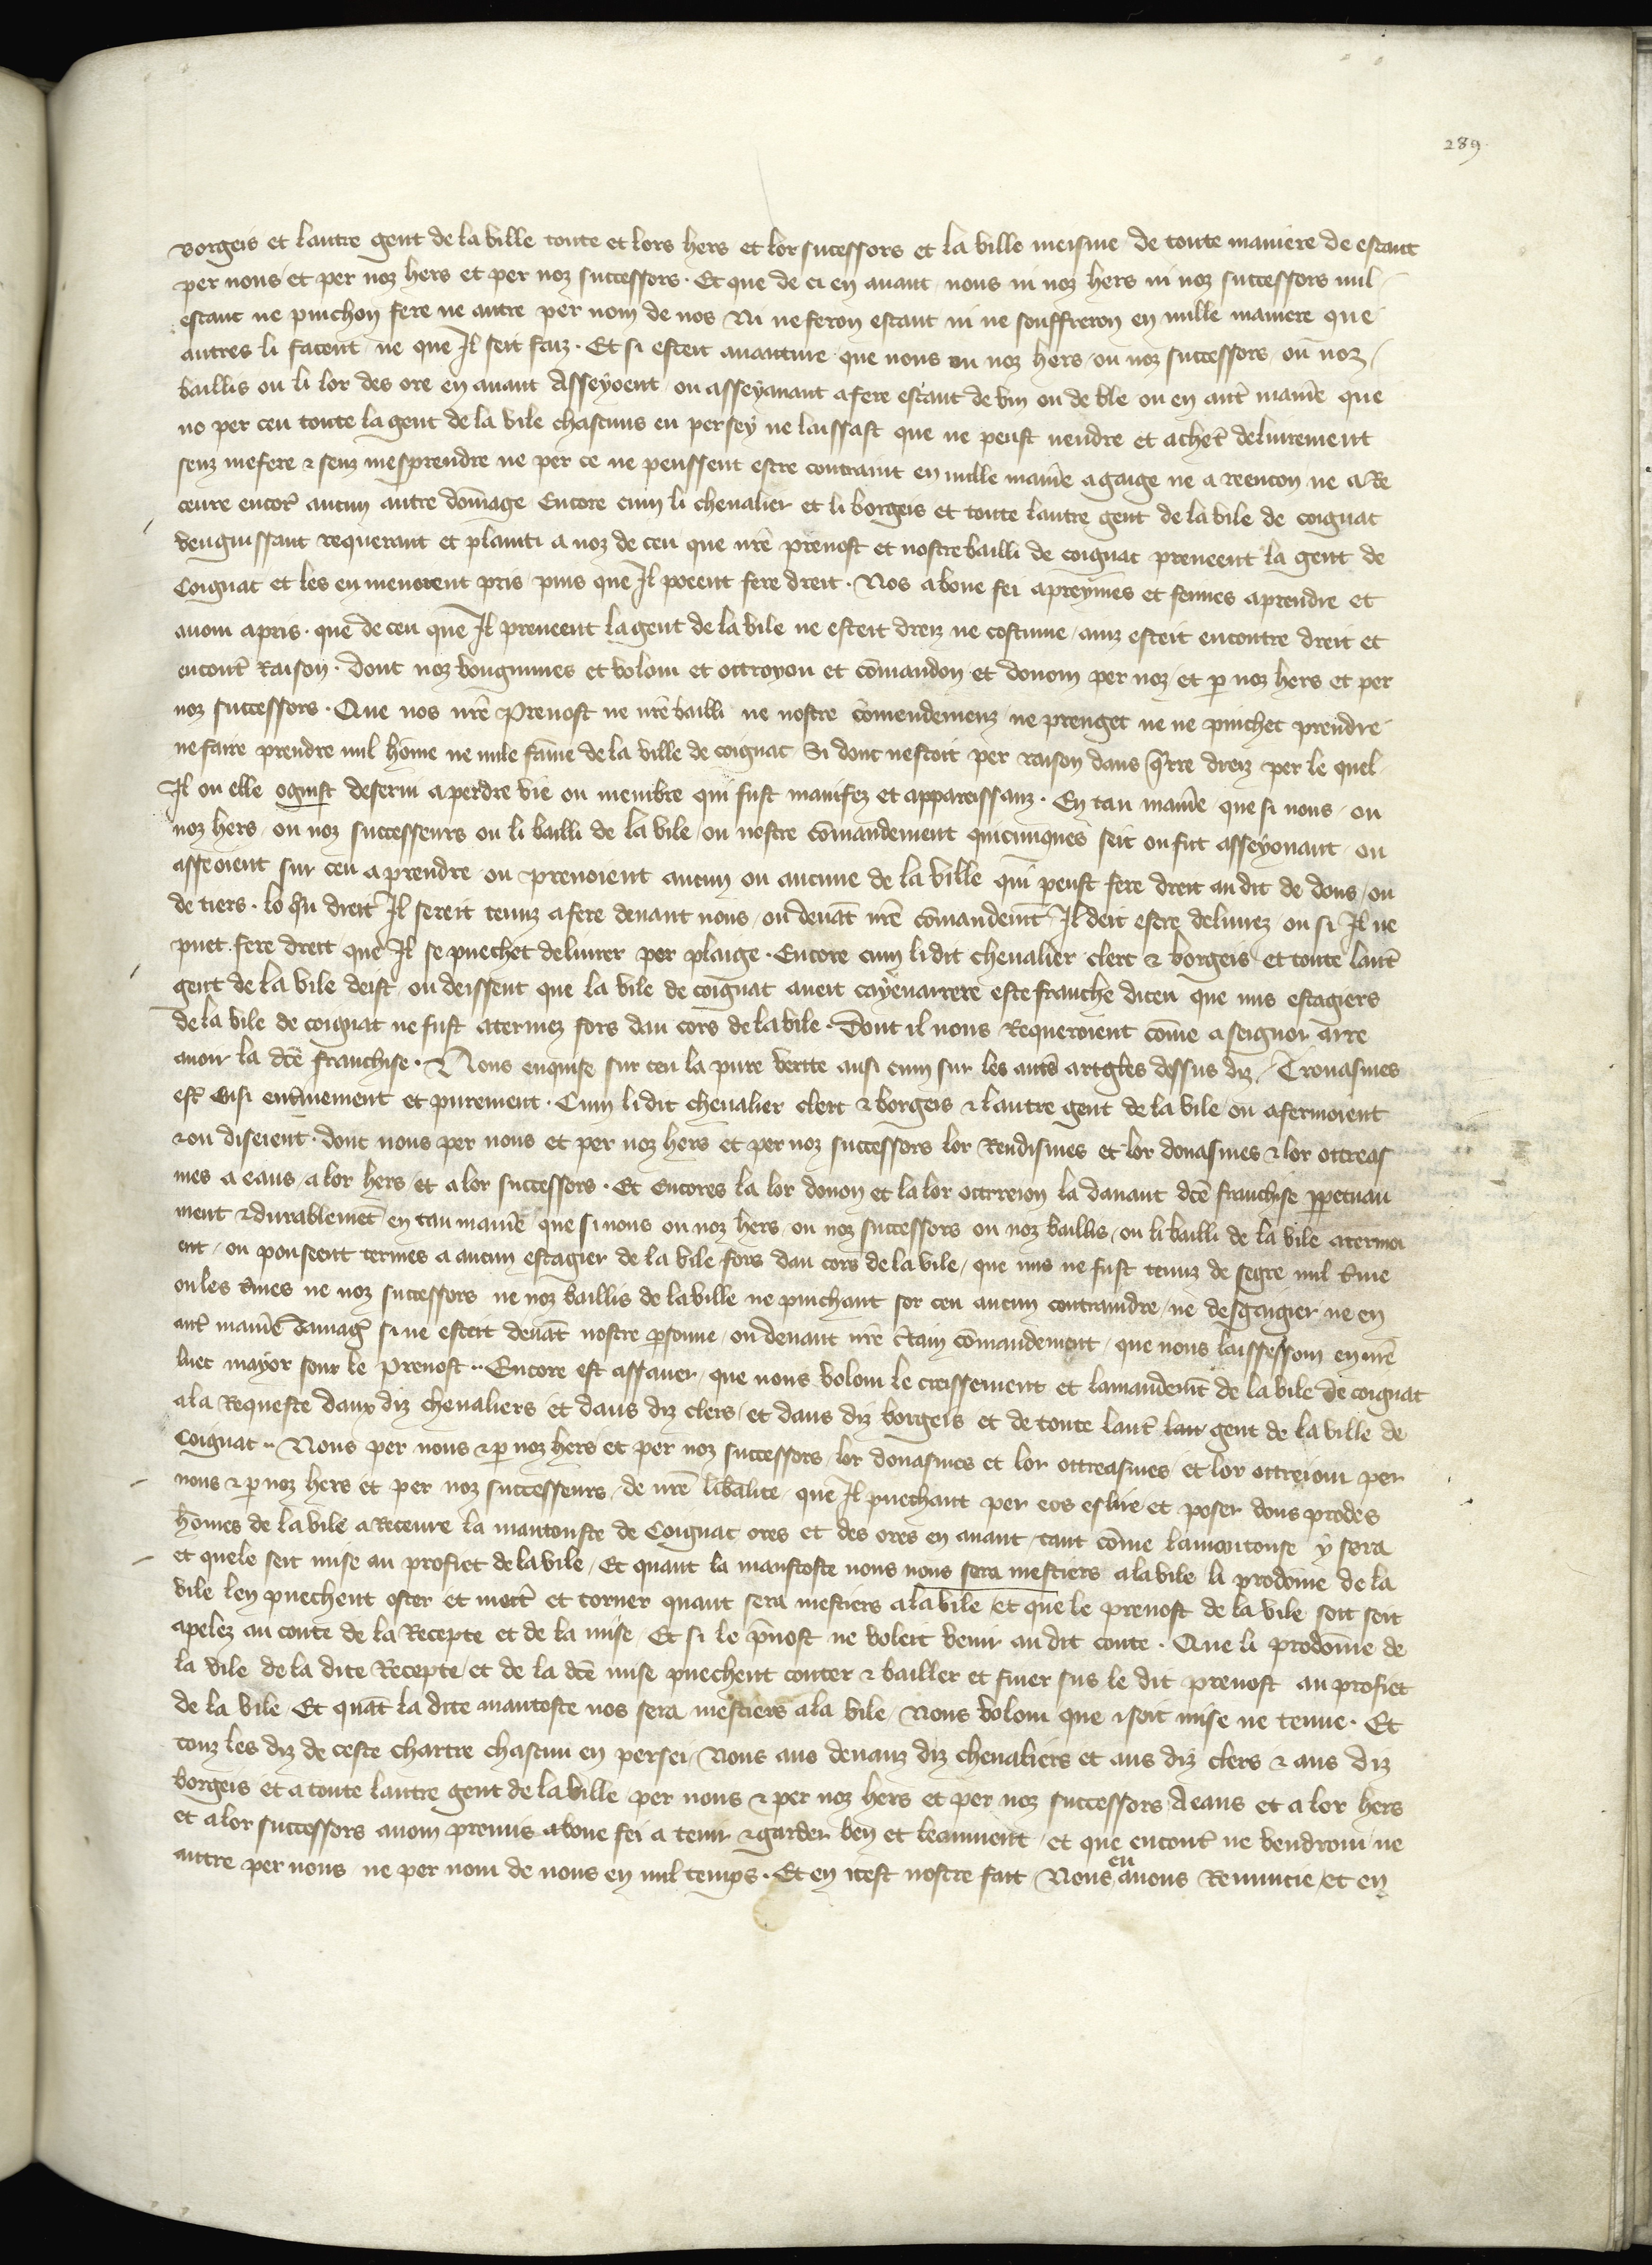 289
Borgeis et lautre gent de la ville toute et lors hers et lor sucessors et la ville meisme de toute maniere de estaut
per nous et per noz hers et per noz successors · Et que de ci en auant nous ni noz hers ni noz successors nul
estaut ne puichon fere ne autre per nom de nos Ni ne feron estaut ni ne souffreron en nulle maniere que
autres li facent ne que Il seit faiz · Et si esteit auanture que nous ou noz hers / ou noz successors / ou noz
baillis ou li lor des ore en auant Asseyoent / ou asseyauant a fere estaut de vin ou de ble ou en autr̃ manie᷑e que
no per ceu toute la gent de la vile chascuns en persey ne laissast que ne peust uendre et achet̃ deliurement
senz mefere ⁊ senz mesprendre ne per ce ne peussent estre contraint en nulle manie᷑e a gaige ne a reencon ne a Re
ceure encor̃ aucun autre dom̃age Encore cum li cheualier et li borgeis et toute lautre gent de la vile de coignat
venguissant requerant et plainti a noz de ceu que nr̃e preuost et nostre bailli de coignat preneent la gent de
Coignat et les en menoient pris puis que Il poeent fere dreit · Nos a bone fei apreymes et feimes aprendre et
auom apris · que de ceu que Il preneent la gent de la vile ne esteit dreiz ne costume / ainz esteit encontre dreit et
encont̃ Raison · dont noz vougumes et volom et ottroyon et com̃andon et donom per noz et p̱ noz hers et per
noz successors · Que nos nr̃e Preuost ne nr̃e bailli ne nostre com̃endemenz ne prenget ne ne puichet prendre
ne faire prendre nul hom̃e ne nule fam̃e de la ville de coignat Si dont nestoit per raison daus q̃rre dreiz per le quel
Il ou elle oguist deserui a perdre vie ou membre qui fust manifez et appareissanz · En tau manie᷑e que si nous / ou
noz hers / ou noz successeurs ou li bailli de la vile / ou nostre com̃andement quicunques seit ou fut asseyouant / ou
asseoient sur ceu a prendre ou prenoient aucun ou aucune de la ville qui peust fere dreit au dit de dous / ou
de tiers · lo q̃u dreit Il sereit tenuz a fere deuant nous / ou deuãt nr̃e com̃andem̃t Il deit estre deliurez ou si Il ne
puet fere dreit que Il se puechet deliurer per plaige · Encore cum li dit cheualier clerc ⁊ borgeis et toute laut̃
gent de la vile deist ou deissent que la vile de coignat aueit cayenarrere este franche diceu que nus estagiers
de la vile de coignat ne fust atermez fors dau cors de la vile · Dont il nous Requeroient com̃e a seignor arre
auoir la dc̃e franchise · Nous enquise sur ceu la pure vertte ausi cum sur les aut̃s artgl̃es dessus diz / Trouasmes
est̃ Ensi ent̃inement et purement · Cum li dit cheualier clerc ⁊ borgeis ⁊ lautre gent de la vile ou afermoient
⁊ ou diseient · dont nous per nous et per noz hers et per noz successors lor Rendismes et lor donasmes ⁊ lor ottreas
mes a eaus / a lor hers et a lor successors · Et Encores la lor donon et la lor ottrreion la dauant dc̃e franchise pp̱etuau
ment ⁊ durablemẽt en tau manie᷑e que si nous ou noz hers / ou noz successors ou noz baillis / ou li bailli de la vile atermoi
ent / ou pouseent termes a aucun estagier de la vile fors dau cors de la vile / que nus ne fust tenuz de segre nul t̃me
ou les t̃mes ne noz successors ne noz baillis de la ville ne puichant sor ceu aucun contraindre / ne desgaigier ne en
aut̃ manie᷑e Damag̃ si ne esteit deuãt nostre p̱sonne / ou deuant nr̃e c̃tain com̃andement / que nous laissessom en nr̃e
luec mayor sour le Preuost ·· Encore est assauer / que nous volom le creissement et lamandem̃t de la vile de coignat
a la Requeste daux diz cheualiers et daus diz clers / et daus diz borgeis et de toute laut̃ lau gent de la ville de
Coignat ·· Nous per nous ⁊ p̱ noz hers et per noz successors lor donasmes et lor ottreasmes et lor ottreiom per
nous ⁊ p̱ noz hers et per noz successeurs / de nr̃e lib̃alite / que Il puechant per eos eslire et poser dous prodes
hom̃es de la vile a Receure la mantouste de Coignat ores et des ores en auant / tant com̃e lamontouse y sera
et quele seit mise au profiet de la vile / Et quant la manstoste nous nous sera mestiers a la vile li prodom̃e de la
vile len puechent oster et mett̃ et torner quant sera mestiers a la vile et que le preuost de la vile soit seit
apelez au conte de la Recepte et de la mise / Et si le p̃uost ne voleit venir au dit conte · Que li prodom̃e de
la vile de la dite Recepte / et de la dc̃e mise puechent conter ⁊ bailler et finer sus le dit preuost au profiet
de la vile / Et quãt la dite mantoste nos sera mestiers a la vile / Nous volom que i soit mise ne tenue · Et
touz les diz de ceste chartre chascun en persei / Nous aus deuanz diz cheualiers et aus diz clers ⁊ aus diz
borgeis et a toute lautre gent de la ville per nous ⁊ per noz hers et per noz successors A eaus et a lor hers
et a lor successors auom premis a bone fei a tenir ⁊ garder ben et leaument / et que encont̃ ne vendrom / ne
autre per nous / ne per nom de nous en nul temps · Et en icest nostre fait Nous en auons Renuncie / et en